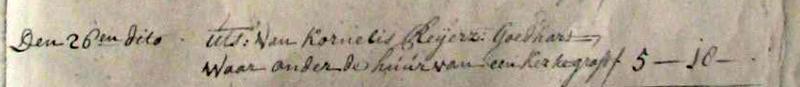 Den 26en dito Uts: Van Kornelis Reijerz: Goedhart
Waar onder de húúr van een Kerkegraf f 5 – 10 –